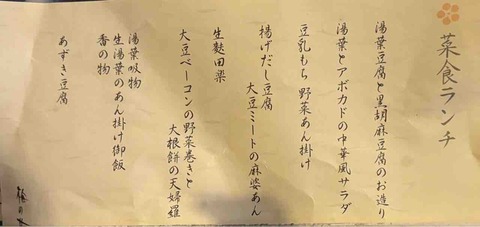 菜食ランチ
湯葉豆腐と黒胡麻豆腐のお造り
湯葉とアボカドの中華風サラダ
豆乳もち 野菜あん掛け
揚げだし豆腐
大豆ミートの麻婆あん
生麩田楽
大豆ベーコンの野菜巻きと
大根餅の天婦羅
湯葉吸物
生湯葉のあん掛け御飯
香の物
あずき豆腐